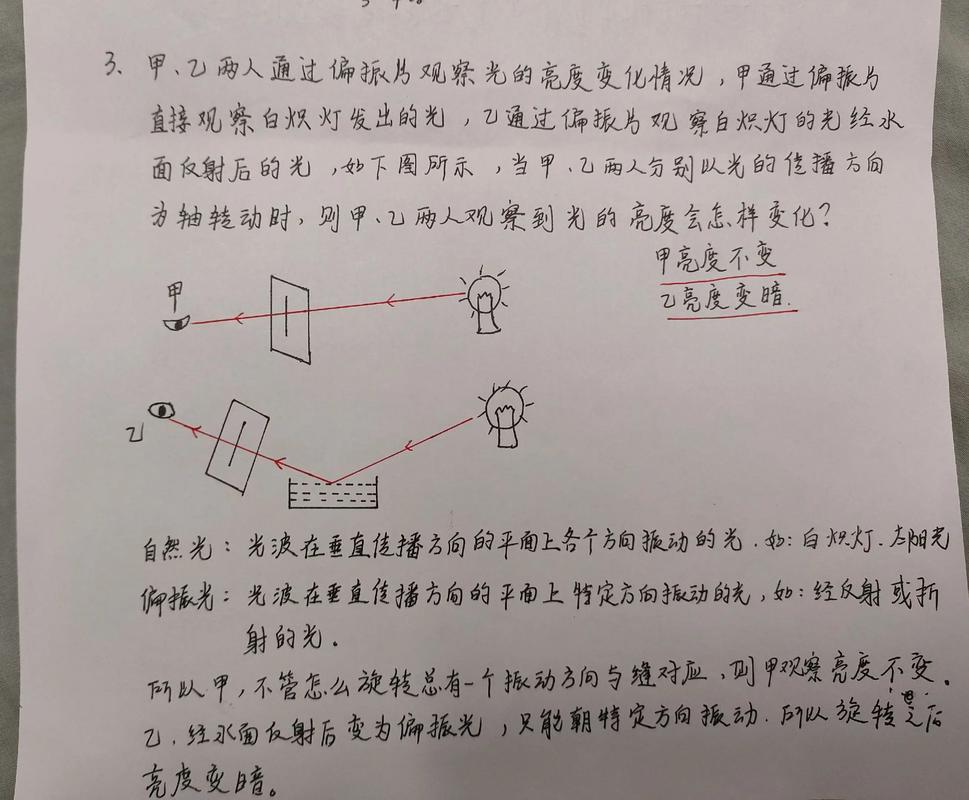 3、甲、乙两人通过偏振片观察光的亮度变化情况，甲通过偏振片
直接观察白炽灯发出的光，乙通过偏振片观察白炽灯的光经水
面反射后的光，如下图所示，当甲、乙两人分别以光的传播方向
为轴转动时，则甲、乙两人观察到光的亮度会怎样变化？
甲亮度不变
乙亮度变暗.
甲
乙
自然光：光波在垂直传播方向的平面上各个方向振动的光.如：白炽灯.太阳光
偏振光：光波在垂直传播方向的平面上特定方向振动的光，如：经反射或折
射的光.
所以甲，不管怎么旋转总有一个振动方向与缝对应，则甲观察亮度不变.
乙.经水面反射后变为偏振光，只能朝特定方向振动.所以旋转之后
亮度变暗。